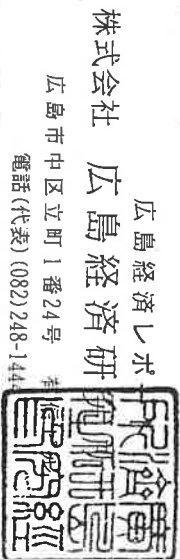 広島経済レポ
株式会社 広島経済研
広島市中区立町1番24号
電話(代表)(082)248-144